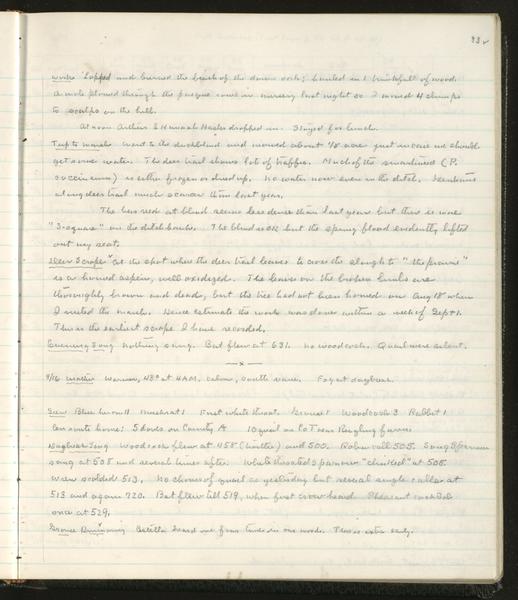 work Lopped and burned the brush of the down oak; hauled in 1 trunkfull of wood.
A mole plowed through the pasque row in nursery last night so I moved 4 clumps
to scalps on the hill.
At noon Arthur & Hannah Hasler dropped in. Stayed for lunch.
Trip to marsh Went to the duckblind and mowed about 1/2 acre just in case we should
get some water. The deer trail shows lots of traffic. Much of the smartweed (P.
coccineum) is either frozen or dried up. No water now even in the ditch.
along deer trail much scarcer than last year.
The bur reed at blind seems less dense than last year but there is more
"3-square" on the ditchbank. The blind is OK but the spring flood evidently lifted
out my seat.
Deer Scrape At the spot where the deer trail leaves to cross the slough to "the prairie"
is a horned aspen, well oxidized. The leaves on the broken limbs are
thoroughly brown and dead, but the tree had not been horned on Aug 18 when
I visited the marsh. Hence estimate the work was done within a week of Sept 1.
This is the earliest scrape I have recorded.
Evening Song Nothing sang. Bat flew at 631. No woodcock. Quail were silent.
x
9/16 Weather Warmer, 48° at 4AM, calm, south vane. Fog at daybreak.
Saw Blue heron 1 Muskrat 1 First white throat. Grouse 1 Woodcock 3 Rabbit 1
Can route home: 5 doves on County A 10 quail on Co T near Ringling farm
Daybreak Song Woodcock flew at 458 (twitter) and 500. Robin call 505. Song Sparrow
song at 508 and several times after. White throated sparrow "chinked" at 508.
Wren scolded 513. No chorus of quail as yesterday but several single calls at
513 and again 720. Bat flew till 519, when first crow heard. Pheasant cock
once at 529.
Grouse Drumming Estella heard one four times in our woods. This is extra early.